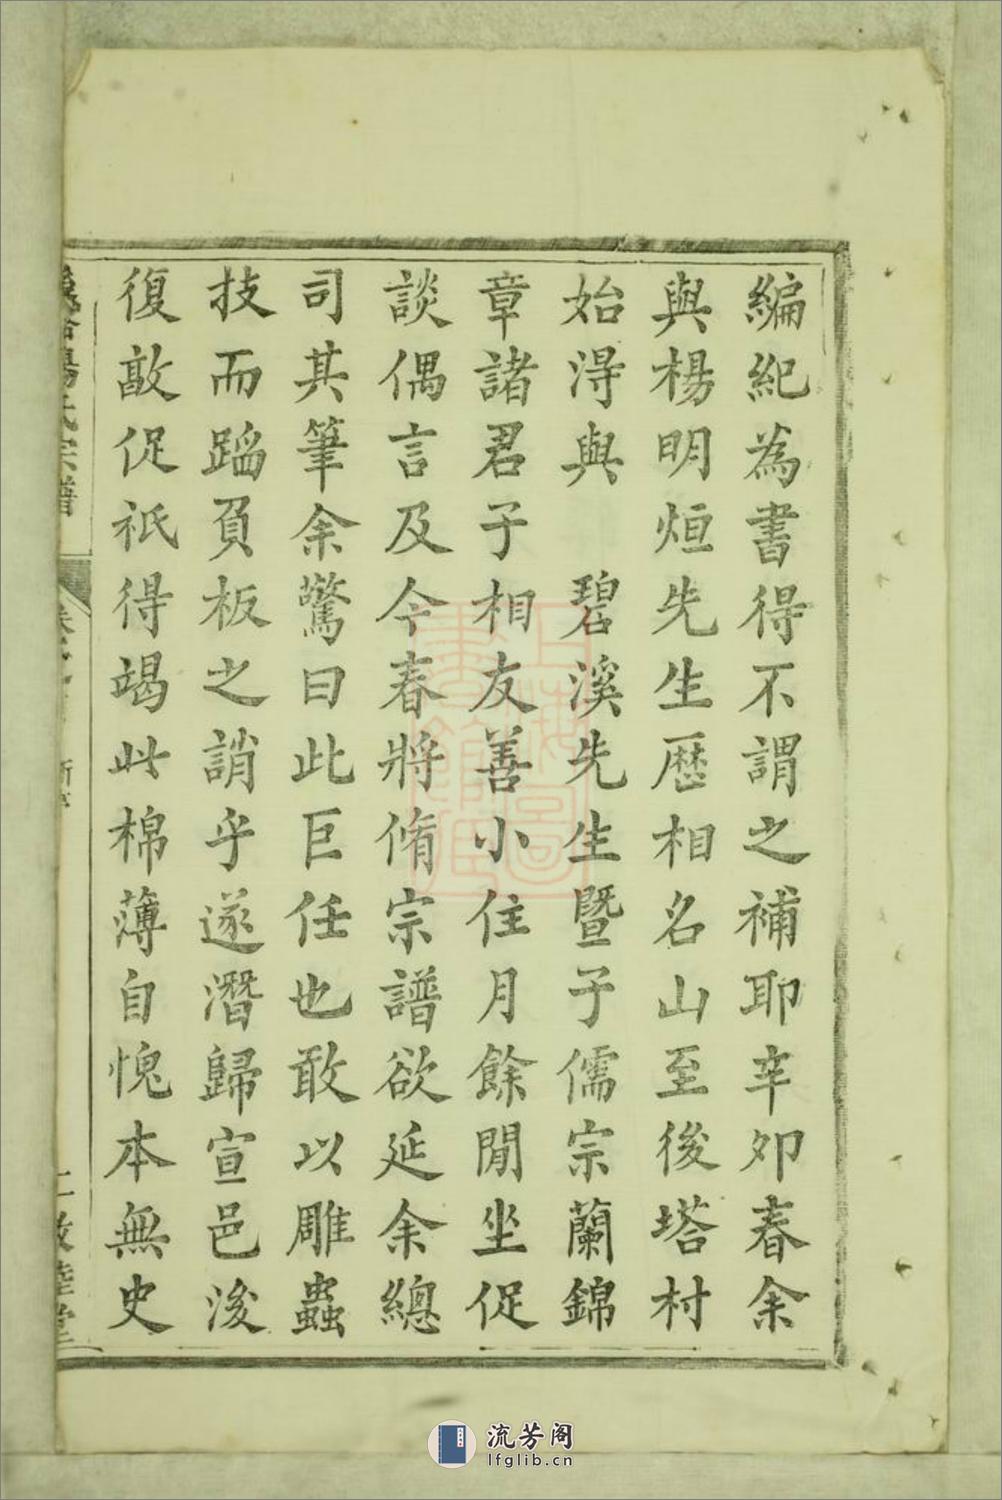 編紀為書得不謂之補耶辛夘春余
與楊明烜先生歷相名山至後塔村
始淂與　碧溪先生暨子儒宗蘭錦
章諸君子相友善小住月餘閒坐促
談偶言及今春將脩宗譜欲延余總
司其筆余驚曰此巨任也敢以雕蟲
技而蹈負板之誚乎遂潛歸宣邑浚
復敲促祇得竭此棉薄自愧本無史
楊氏宗譜
上海圖
書館藏
流芳阁
lfglib.cn